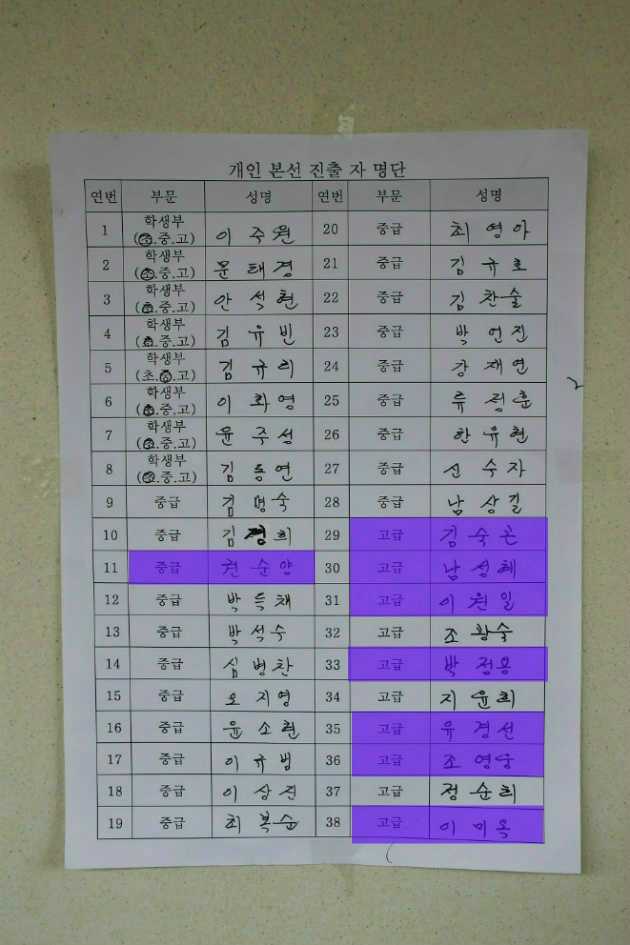 개인 본선 진출 자 명단
연번 부문 성명 연번 부문 성명
1 학생부 (초.중.고) 이주원 20 중급 최영아
2 학생부 (초.중.고) 문태경 21 중급 김규호
3 학생부 (초.중.고) 안석현 22 중급 김찬술
4 학생부 (초.중.고) 김유빈 23 중급 박언진
5 학생부 (초.중.고) 김규리 24 중급 강재연
6 학생부 (초.중.고) 이화영 25 중급 류정훈
7 학생부 (초.중.고) 윤주성 26 중급 한유현
8 학생부 (초.중.고) 김동연 27 중급 신수자
9 중급 김명숙 28 중급 남상길
10 중급 김정희 29 고급 김숙곤
11 중급 권순양 30 고급 남성혜
12 중급 박득채 31 고급 이원일
13 중급 박석수 32 고급 조황숙
14 중급 심병찬 33 고급 박정용
15 중급 오지영 34 고급 지윤희
16 중급 윤소현 35 고급 유경선
17 중급 이규범 36 고급 조영웅
18 중급 이상진 37 고급 정순희
19 중급 최복순 38 고급 이미옥